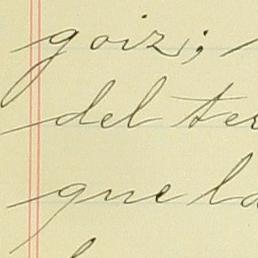 goiz;
del te
que la